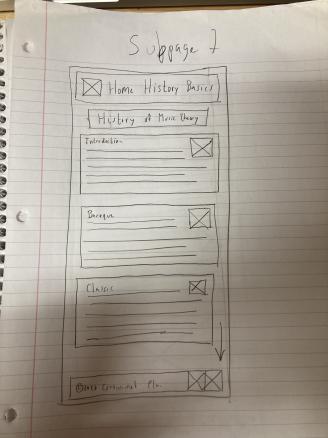 Subpage 7
Home History Basics
History of Music Theory
Introduction
Baroque
Classic
©